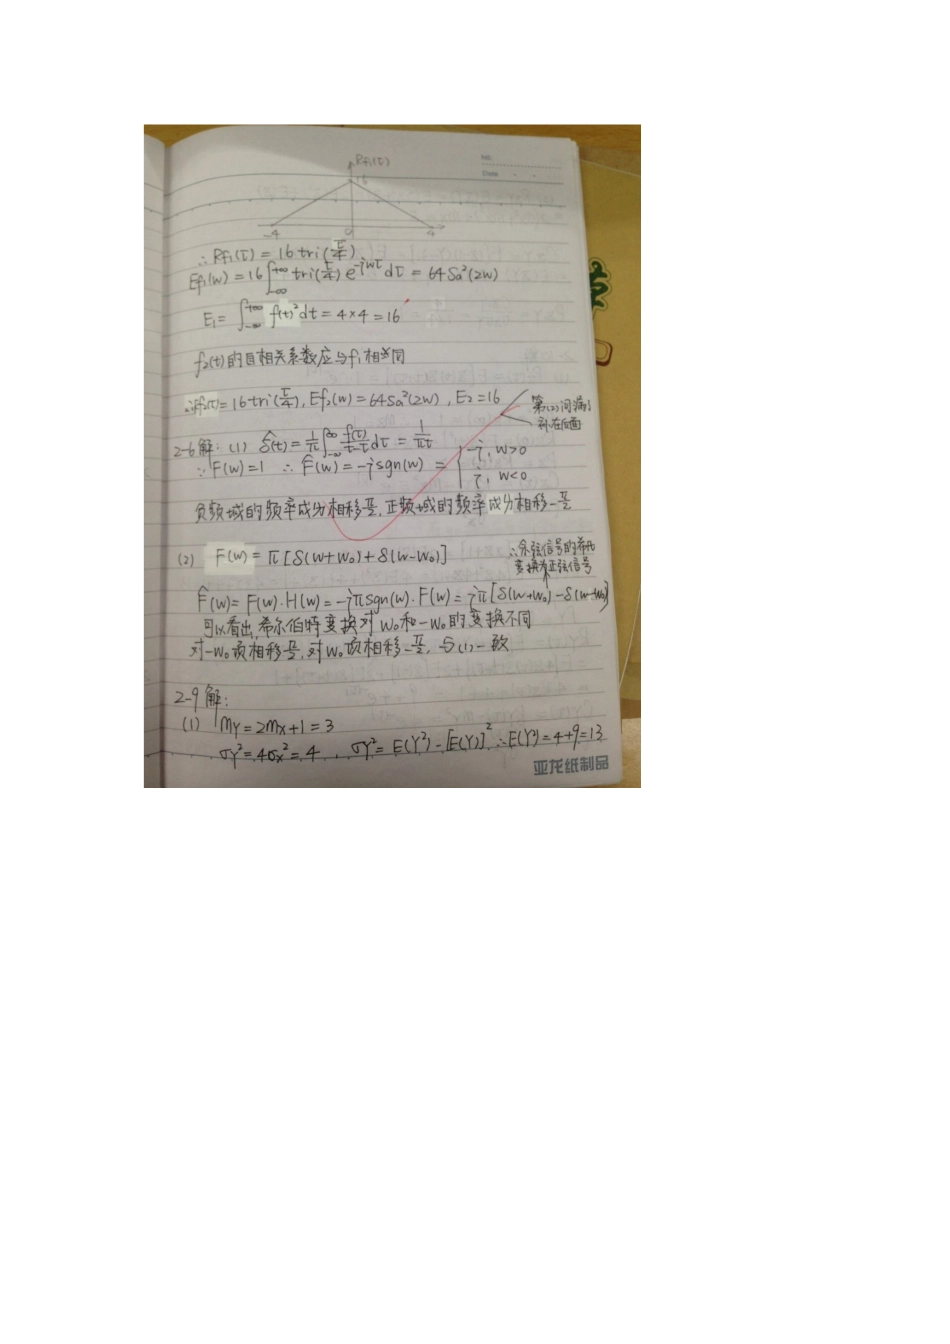 Rf₁(τ)
16
-4 0 4
No.
Date
∴ Rf₁(τ) = 16 tri(τ/4)
Ef₁(w) = 16∫_{-∞}^{+∞} tri(τ/4) e^{-jwτ} dτ = 64 Sa²(2w)
E₁ = ∫_{-∞}^{+∞} f(t)² dt = 4×4 = 16
f₂(t)的自相关系数应与f₁相同
∴Rf₂(τ) = 16 tri(τ/4), Ef₂(w) = 64Sa²(2w), E₂ = 16
第(2)问漏了
补在后面
2-6解: (1) δ̂(t) = 1/π ∫_{-∞}^{∞} f(τ)/(t-τ) dτ = 1/(πt)
∵ F(w)=1 ∴ F̂(w) = -j sgn(w) = { -j, w>0
j, w<0
负频域的频率成分相移π/2, 正频域的频率成分相移-π/2
(2) F(w) = π[δ(w+w₀)+δ(w-w₀)]
∴余弦信号的希氏
变换为正弦信号
F̂(w) = F(w)·H(w) = -jπsgn(w)·F(w) = jπ[δ(w+w₀)-δ(w-w₀)]
可以看出,希尔伯特变换对w₀和-w₀的变换不同
对-w₀项相移π/2, 对w₀项相移-π/2, 与(1)一致
2-9解:
(1) mY = 2mX+1 = 3
σY² = 4σX² = 4 , σY² = E(Y²) - [E(Y)]² ∴E(Y²) = 4+9=13
亚龙纸制品